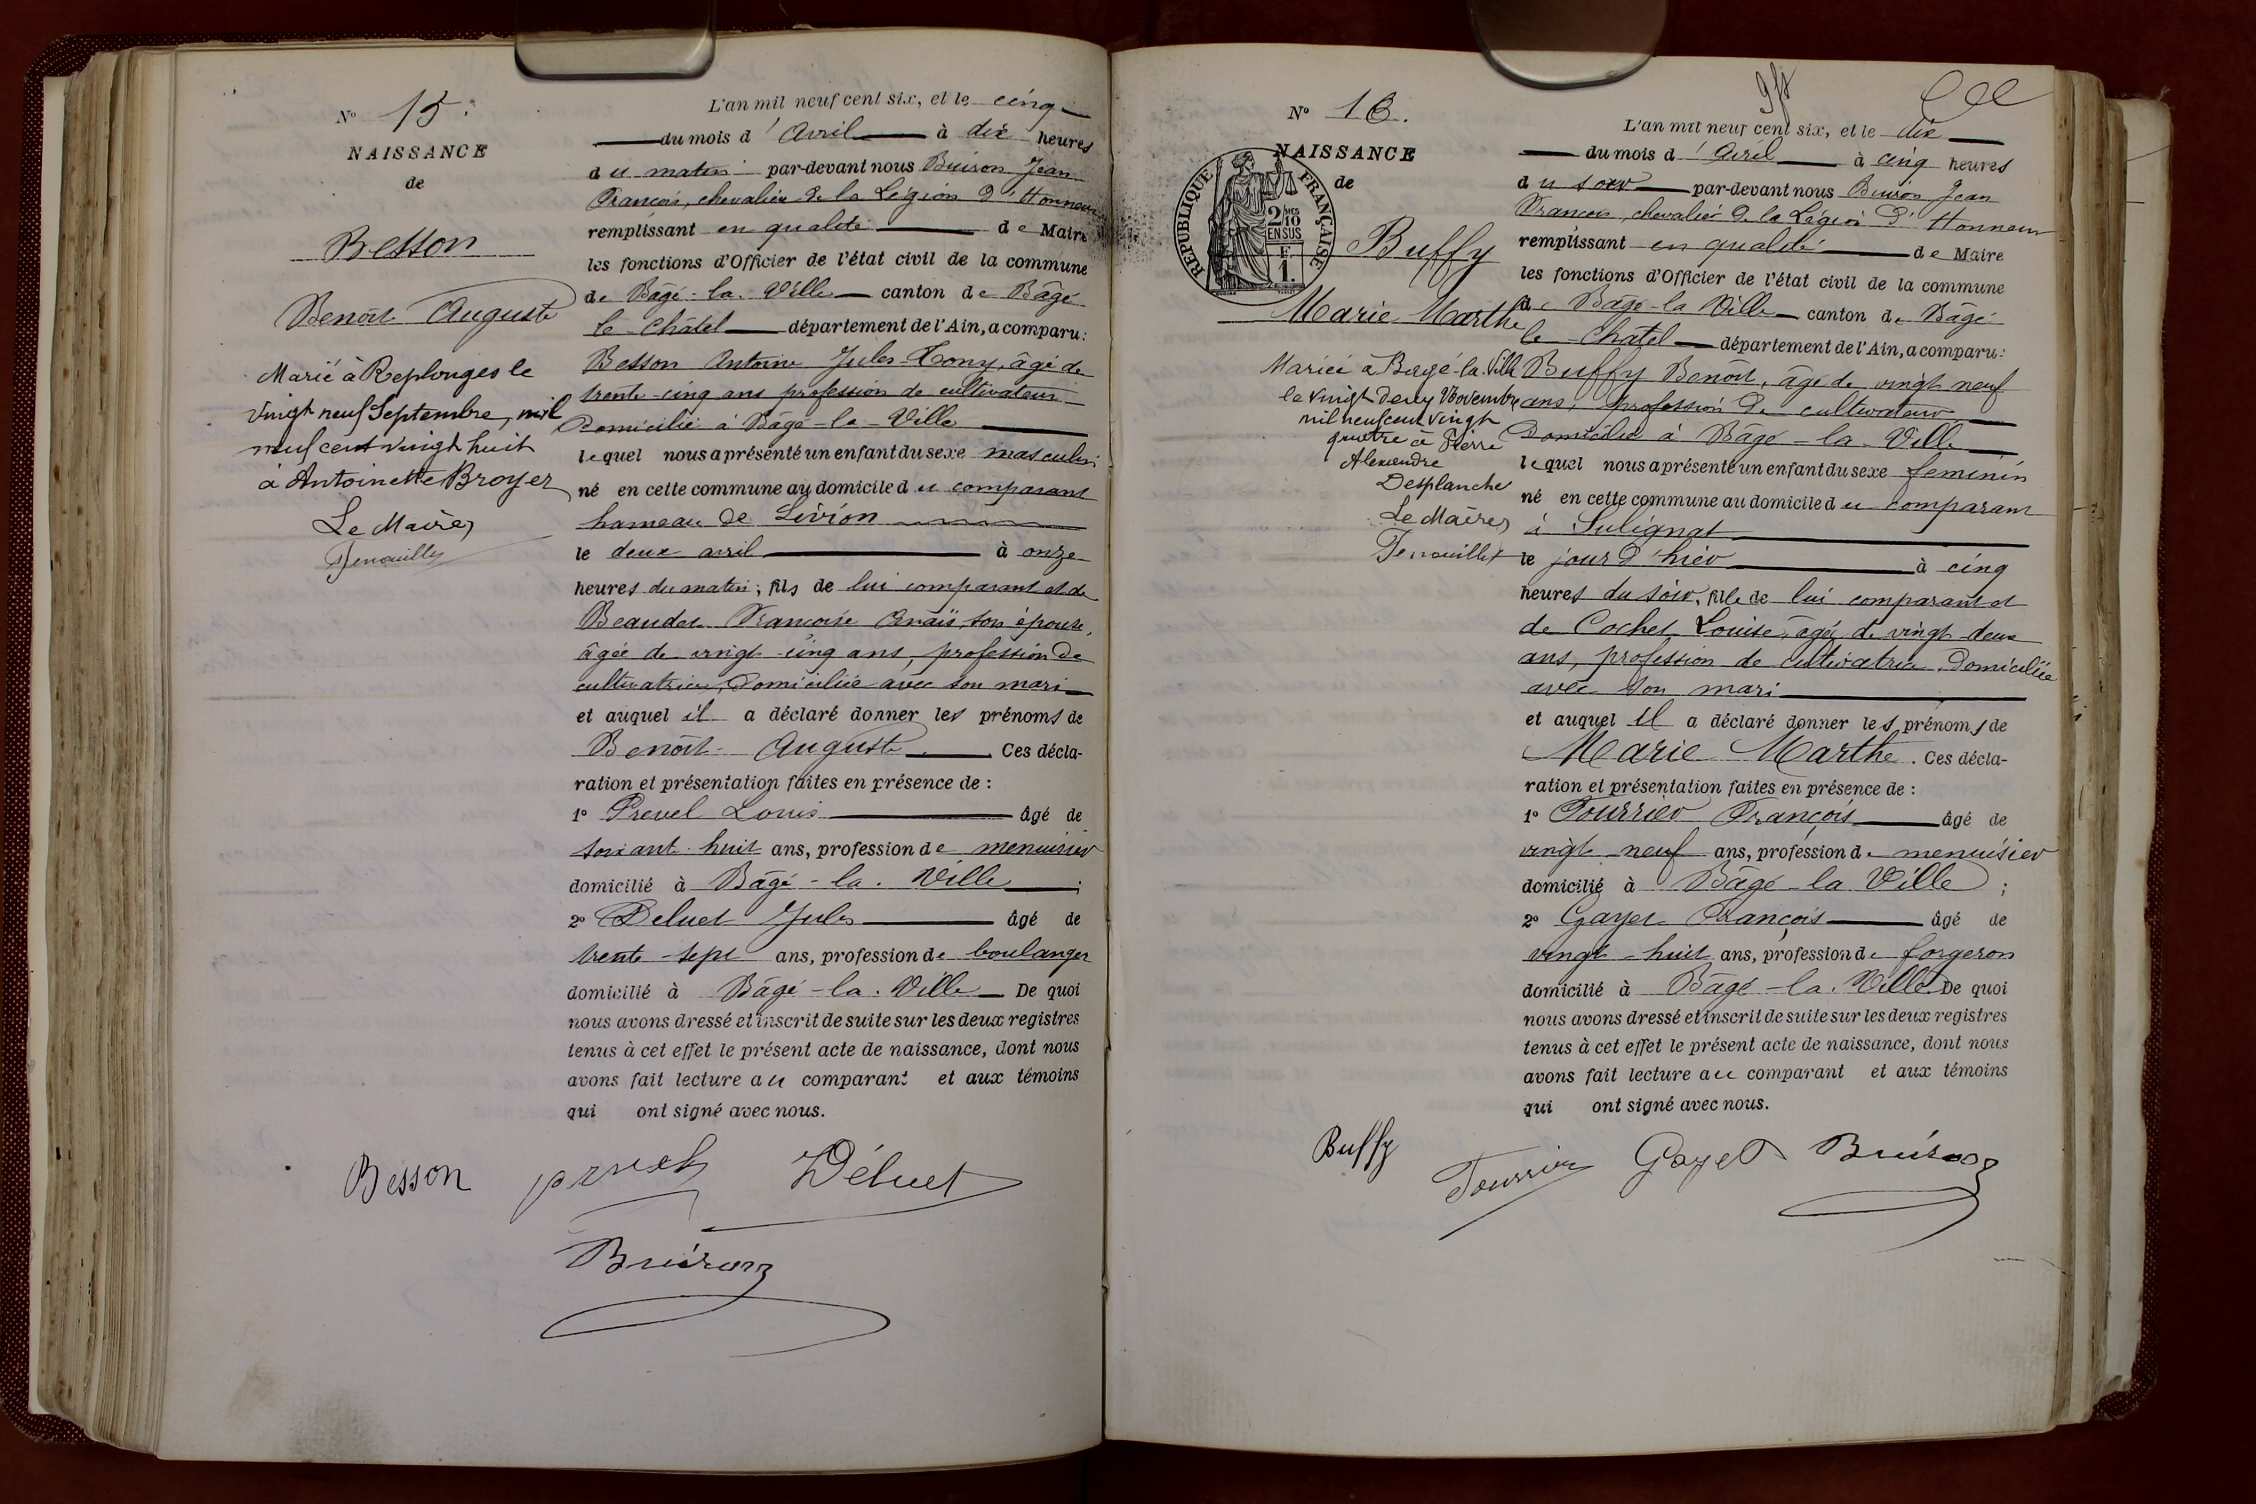 N° 15.
NAISSANCE
de
Besson
Benoît Auguste
Marié à Replonges le
vingt neuf Septembre, mil
neuf cent vingt huit
à Antoinette Broyer
Le Maire,
L'an mil neuf cent six, et le cinq
du mois d'Avril à dix heures
du matin par-devant nous Buiron Jean
François, chevalier de la Légion d'Honneur
remplissant en qualité de Maire
les fonctions d'Officier de l'état civil de la commune
de Bâgé-la-Ville canton de Bâgé
le Châtel département de l'Ain, a comparu:
Besson Antoine Jules Tony, âgé de
trente-cinq ans profession de cultivateur
Domicilié à Bâgé-la-Ville
lequel nous a présenté un enfant du sexe masculin
né en cette commune au domicile du comparant
hameau de Livion
le deux avril à onze
heures du matin; fils de lui comparant et de
Beaudet Françoise Anaïs, son épouse,
âgée de vingt-cinq ans, profession de
cultivatrice, Domiciliée avec son mari
et auquel il a déclaré donner les prénoms de
Benoît-Auguste. Ces décla-
ration et présentation faites en présence de :
1° Prevel Louis âgé de
soixant-huit ans, profession de menuisier
domicilié à Bâgé-la-Ville ;
2° Deluet Jules âgé de
trente-sept ans, profession de boulanger
domicilié à Bâgé-la-Ville De quoi
nous avons dressé et inscrit de suite sur les deux registres
tenus à cet effet le présent acte de naissance, dont nous
avons fait lecture au comparant et aux témoins
qui ont signé avec nous.
Besson Déluet
Buiron
N° 16.
NAISSANCE
de
RÉPUBLIQUE FRANÇAISE
2/10 EN SUS
F 1.
Buffy
Marie Marthe
Mariée à Bagé-la-Ville
le vingt deux Novembre
mil neuf cent vingt
quatre à Pierre
Alexandre
Desplanche
Le Maire,
L'an mil neuf cent six, et le dix
du mois d'Avril à cinq heures
du soir par-devant nous Buiron Jean
François, chevalier de la Légion d'Honneur
remplissant en qualité de Maire
les fonctions d'Officier de l'état civil de la commune
de Bâgé-la-Ville canton de Bâgé
le Châtel département de l'Ain, a comparu:
Buffy Benoît, âgé de vingt neuf
ans, profession de cultivateur
Domicilié à Bâgé-la-Ville
lequel nous a présenté un enfant du sexe feminin
né en cette commune au domicile du comparant
à Sulignat
le jour d'hier à cinq
heures du soir, fille de lui comparant et
de Cochet Louise, âgée de vingt deux
ans, profession de cultivatrice, Domiciliée
avec son mari
et auquel il a déclaré donner les prénoms de
Marie Marthe. Ces décla-
ration et présentation faites en présence de :
1° Tourrier François âgé de
vingt-neuf ans, profession de menuisier
domicilié à Bâgé-la-Ville ;
2° Gayet François âgé de
vingt-huit ans, profession de forgeron
domicilié à Bâgé-la-Ville De quoi
nous avons dressé et inscrit de suite sur les deux registres
tenus à cet effet le présent acte de naissance, dont nous
avons fait lecture au comparant et aux témoins
qui ont signé avec nous.
Buffy Tourrier Gayet Buiron